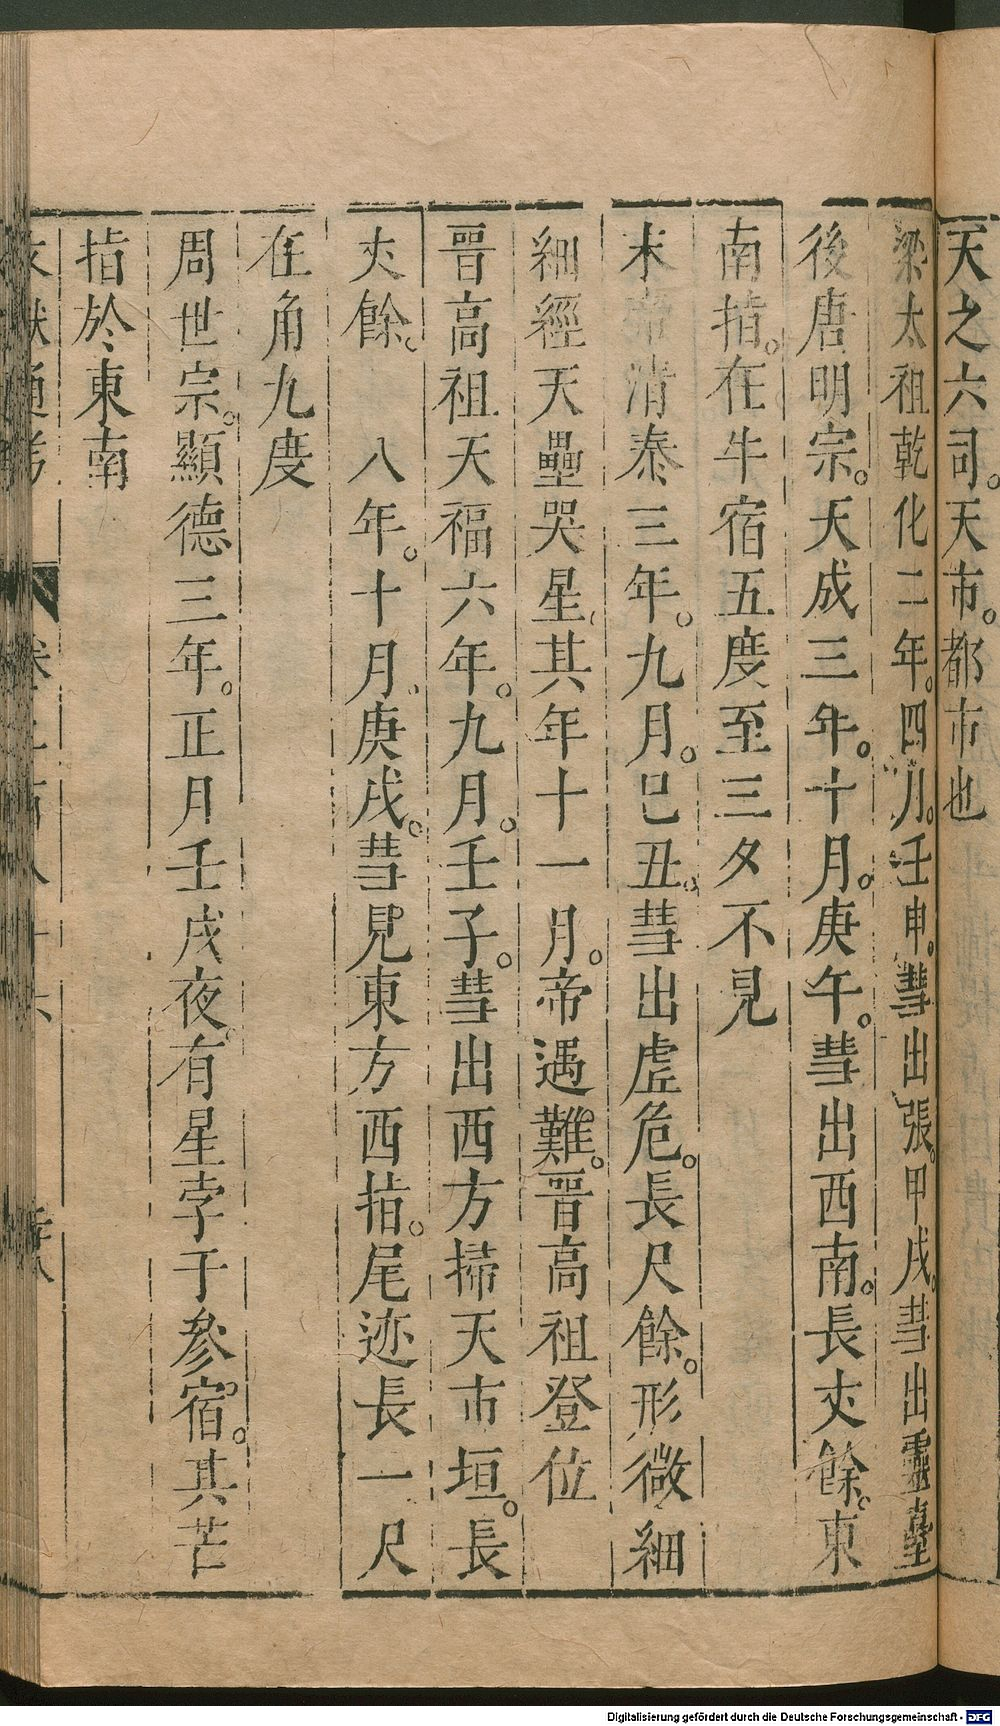 天之六司。天市。都市也
梁太祖乾化二年。四月。壬申。彗出張。甲戌。彗出靈臺
後唐明宗。天成三年。十月。庚午。彗出西南。長丈餘。東
南指。在牛宿五度至三夕不見
末帝清泰三年。九月。己丑。彗出虛危。長尺餘。形微細
細經天壘哭星、其年十一月。帝遇難。晉高祖登位
晉高祖天福六年。九月。壬子。彗出西方掃天市垣。長
丈餘。 八年。十月、庚戌。彗見東方西指。尾迹長一尺
在角九度
周世宗。顯德三年。正月壬戌夜。有星孛于參宿。其芒
指於東南
文獻通考 卷二百八十六
Digitalisierung gefördert durch die Deutsche Forschungsgemeinschaft - DFG